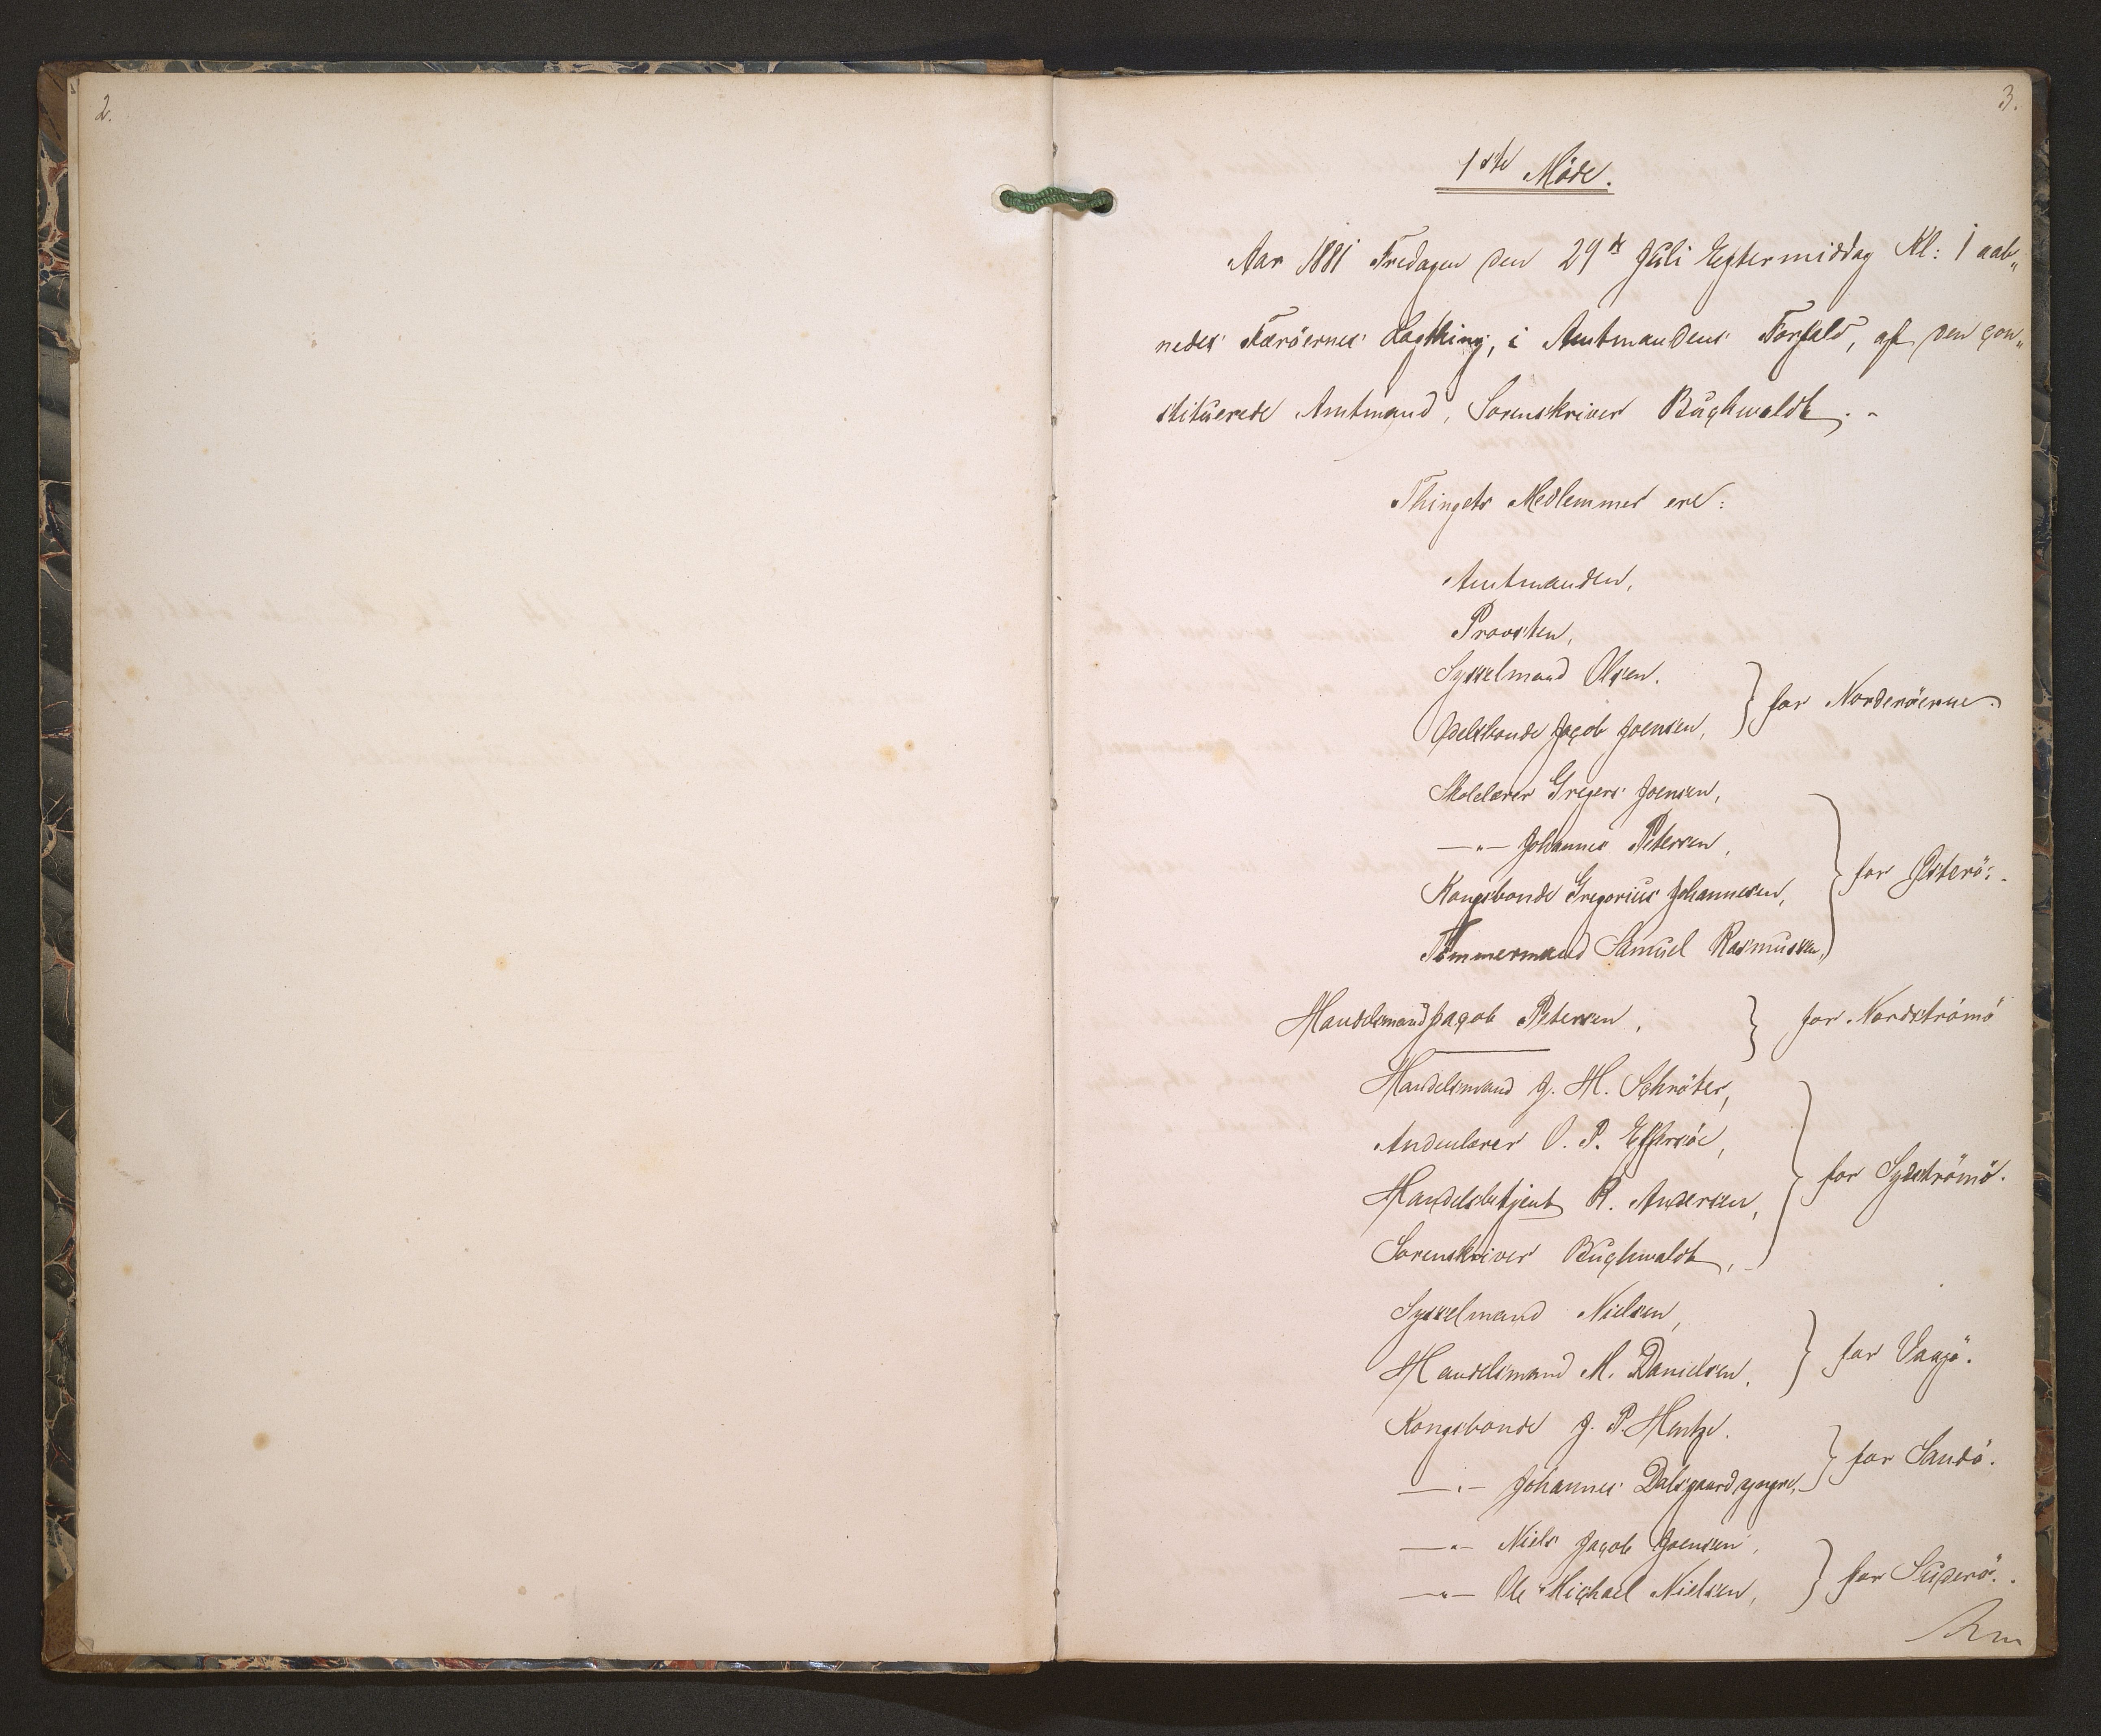 2.
3.
1ste Möde.
Aar 1881 Fredagen den 29de Juli Eftermiddag Kl: 1 aab„
nedes Færöernes Lagthing, i Amtmandens Forfald, af den con„
stituerede Amtmand, Sorenskriver Buchwaldt. -
Thingets Medlemmer ere:
Amtmanden,
Provsten,
Sysselmand Olsen.
Odelsbonde Jacob Joensen, } for Norderöerne.
Skolelærer Gregers Joensen,
—„— Johannes Petersen,
Kongsbonde Gregorius Johannesen, } for Österö. -
Tömmermand Samuel Rasmussen,
Handelsmand Jacob Petersen, } for Nordströmö
Handelsmand J. H. Schröter,
Andenlærer O. P. Effersöe,
Handelsbetjent R. Andersen, } for Sydströmö.
Sorenskriver Buchwaldt, -
Sysselmand Nielsen,
Handelsmand M. Danielsen, } for Vaagö.
Kongsbonde J. P. Hentze.
—„— Johannes Dalsgaard yngre, } for Sandö.
—„— Niels Jacob Joensen,
—„— Ole Michael Nielsen, } for Suderö. .